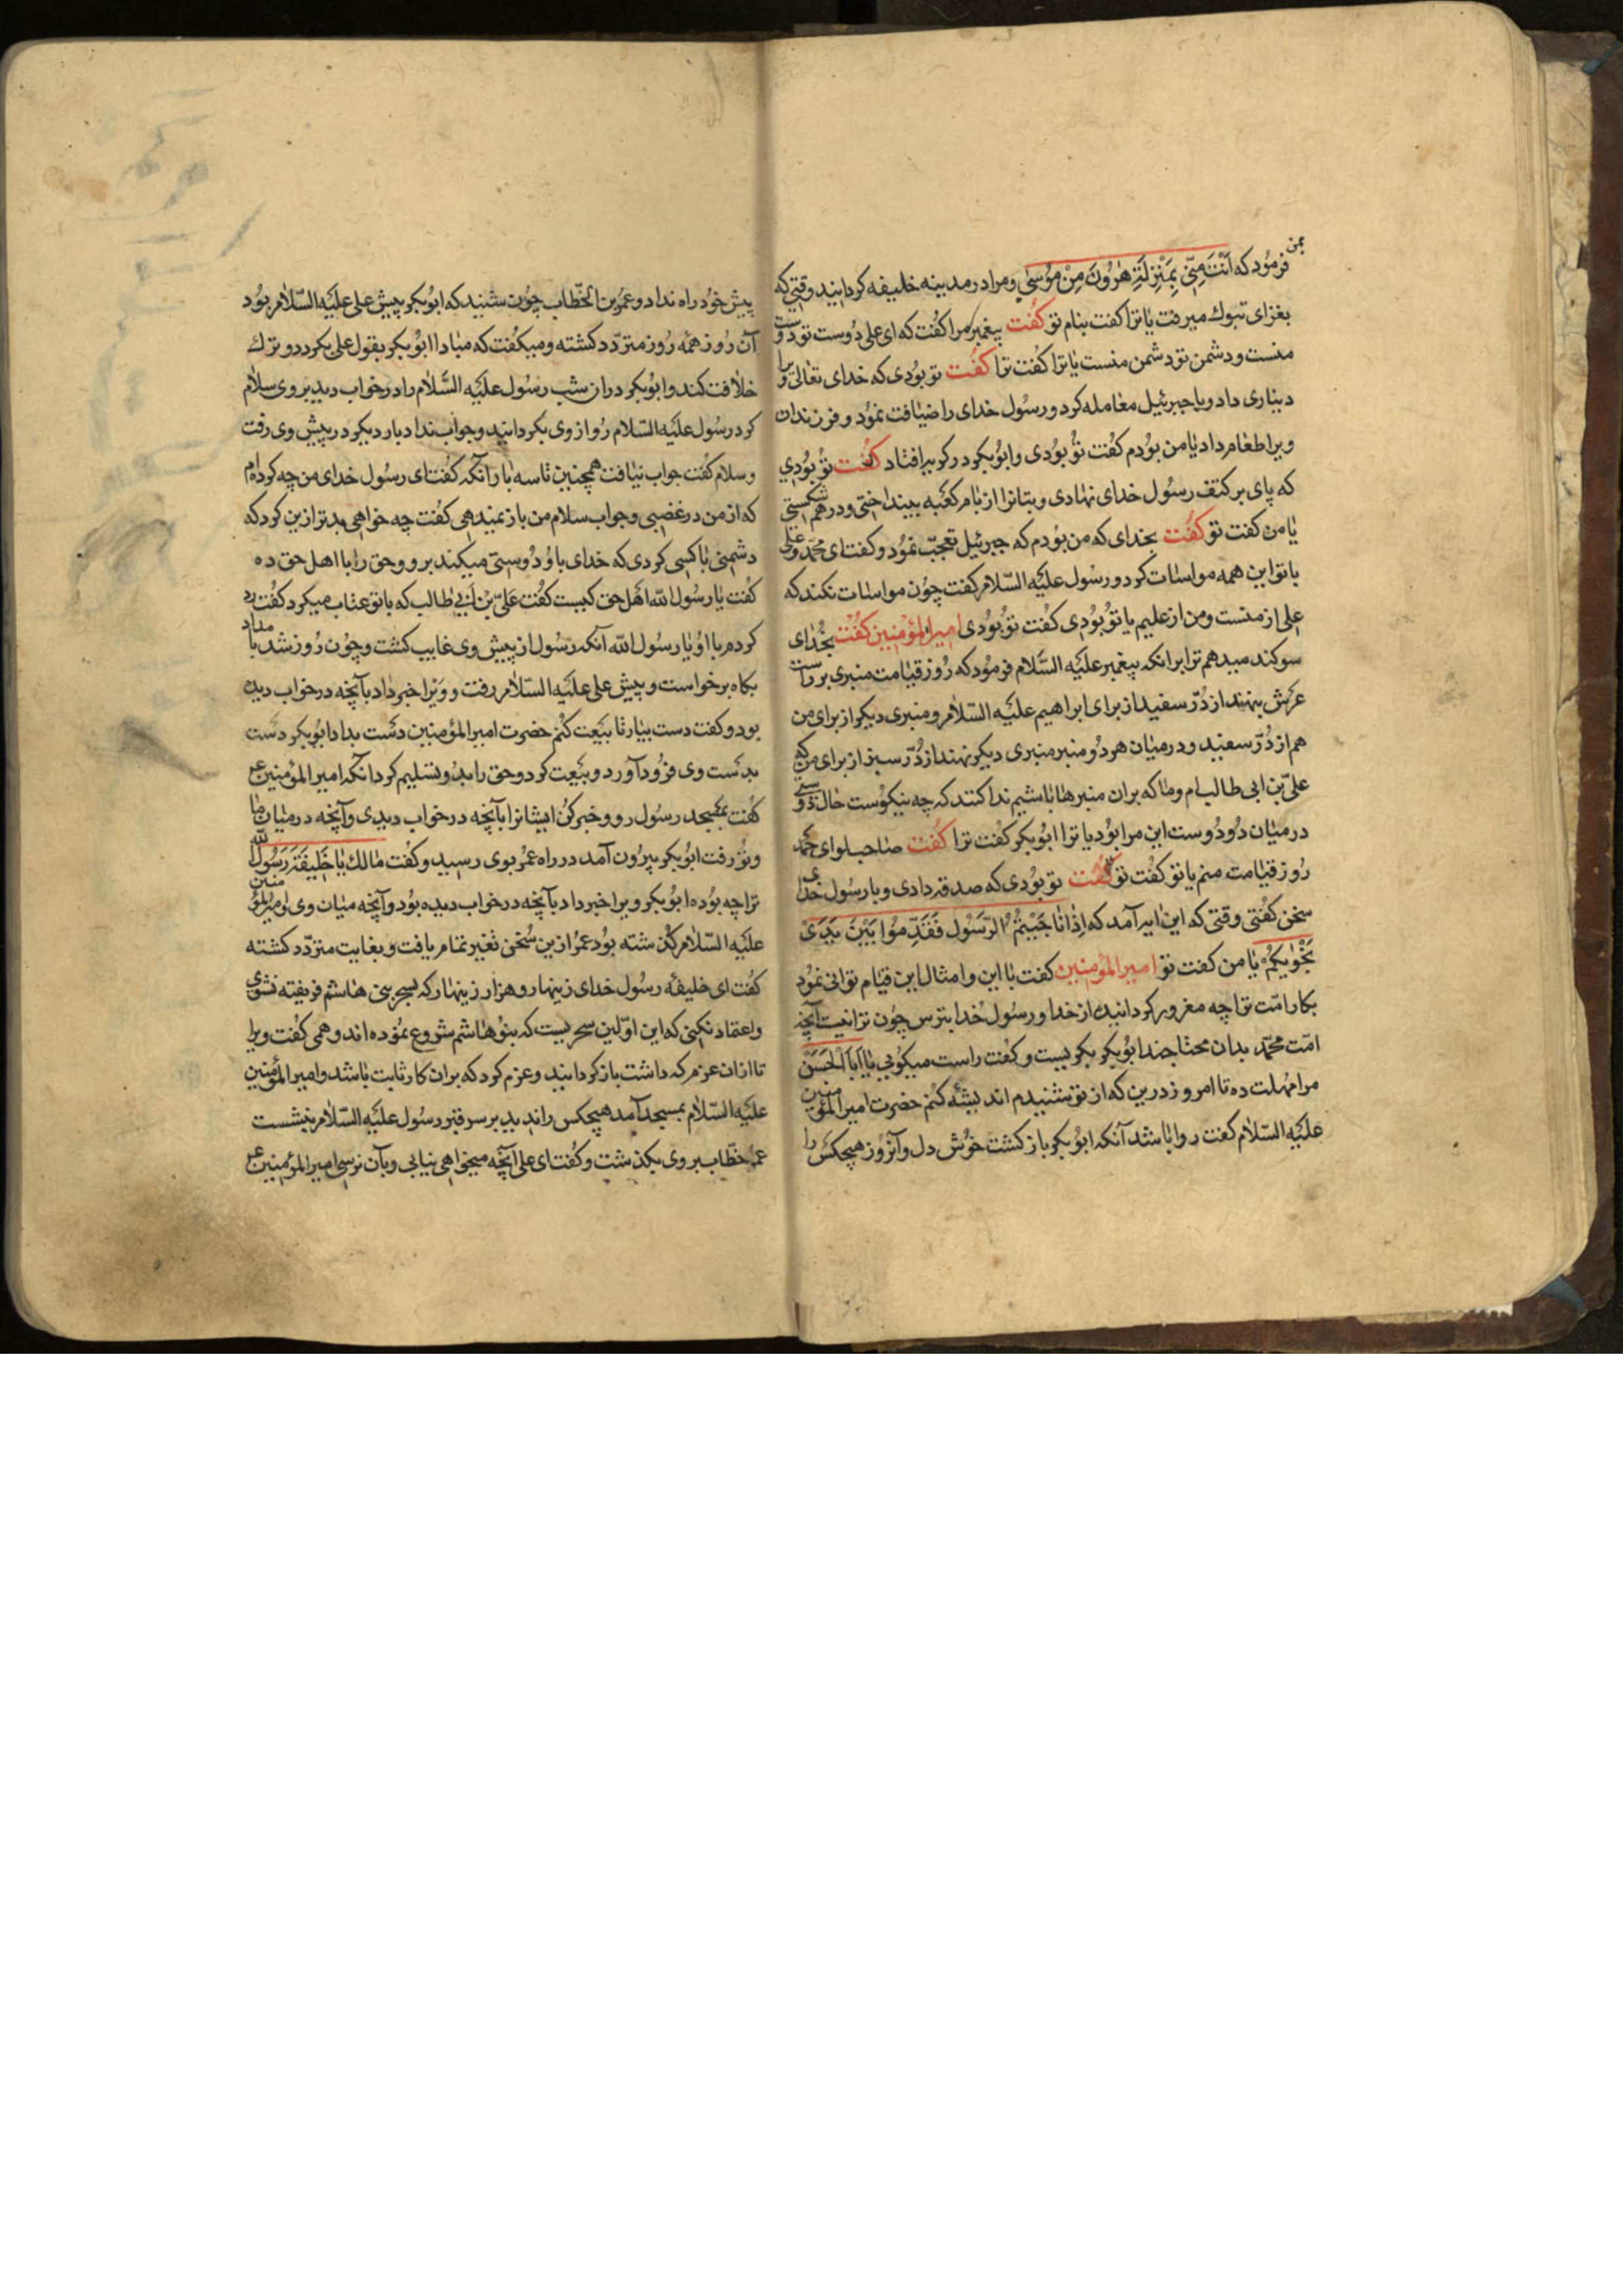 بمن
فرمود که اَنْتَ مِنّی بِمَنْزِلَةِ هٰرُونَ مِنْ مُوسٰی و مرا در مدینه خلیفه کردانید وقتی که
بغزای تبوك میرفت یا ترا کفت بنام تو کفت پیغمبر مرا کفت که ای علی دوست تو دوست
منست و دشمن تو دشمن منست یا ترا کفت ترا کفت تو بودی که خدای تعالی ویرا
دیناری داد و با جبرئیل معامله کرد و رسول خدای را ضیافت نمود و فرزندان
ویرا طعام داد یا من بودم کفت تو بودی و ابوبکر در کریه افتاد کفت تو بودی
که پای بر کتف رسول خدای نهادی و بتانرا از بام کعبه بینداختی و در هم شکستی
یا من کفت تو کفت بخدای که من بودم که جبرئیل تعجب نمود و کفت ای محمد و علی
با تو این همه مواسات کرد و رسول علیه السلام کفت چون مواسات نکند که
علی از منست و من از علیم یا تو بودی کفت تو بودی امیر المؤمنین کفت بخدای
سوکند میدهم ترا برانکه پیغمبر علیه السلام فرمود که روز قیامت منبری بر راست
عرش بنهند از درّ سفید از برای ابراهیم علیه السلام و منبری دیکر از برای من
هم از درّ سفید و در میان هر دو منبر منبری دیکر نهند از درّ سبز از برای من که
علی بن ابی طالب ام و ما که بران منبرها باشیم ندا کنند که چه نیکوست حال دوستی
در میان دو دوست این مرا بود یا ترا ابوبکر کفت ترا کفت صاحب لوای محمد
روز قیامت منم یا تو کفت تو کفت تو بودی که صدقه دادی و با رسول خدای
سخن کفتی وقتی که این ایه آمد که اِذٰا نٰاجَیْتُمُ الرَّسُول فَقَدِّمُوا بَیْنَ یَدَیْ
نَجْوٰیکُمْ یا من کفت تو امیر المؤمنین کفت با این و امثال این قیام توانی نمود
بکار امّت ترا چه مغرور کردانید از خدا و رسول خدا بترس چون ترا نیست آنچه
امّت محمّد بدان محتاجند ابوبکر بکریست و کفت راست میکوئی یا اَبَا الْحَسَنْ
مرا مهلت ده تا امروز درین که از تو شنیدم اندیشه کنم حضرت امیر المؤمنین
علیه السلام کفت روا باشد آنکه ابوبکر باز کشت خوش دل و آنروز هیچکس را
پیش خود راه نداد و عمر بن الخطّاب چون شنید که ابوبکر پیش علی علیه السلام بود
آن روز همه روز متردّد کشته و میکفت که مبادا ابوبکر بقول علی بکردد و ترك
خلافت کند و ابوبکر در ان شب رسول علیه السلام را در خواب دید بر وی سلام
کرد رسول علیه السلام رو از وی بکردانید و جواب نداد بار دیکر در پیش وی رفت
و سلام کفت جواب نیافت همچنین تا سه بار آنکه کفت ای رسول خدای من چه کرده‌ام
که از من در غضبی و جواب سلام من باز نمیدهی کفت چه خواهی بدتر ازین کرد که
دشمنی با کسی کردی که خدای با او دوستی میکند برو و حق را با اهل حق ده
کفت یا رسول الله اهل حق کیست کفت عَلیّ بْن اَبی طالب که با تو عتاب میکرد کفت رد
کردم با او یا رسول الله آنکه رسول از پیش وی غایب کشت و چون روز شد بامداد
بکاه برخواست و پیش علی علیه السلام رفت و ویرا خبر داد بآنچه در خواب دیده
بود و کفت دست بیار تا بیعت کنم حضرت امیر المؤمنین دست بداد ابوبکر دست
بدست وی فرود آورد و بیعت کرد و حق را بدو تسلیم کرد آنکه امیر المؤمنین ع
کفت بمسجد رسول رو و خبر کن ایشانرا بآنچه در خواب دیدی و آنچه در میان ما
و تو رفت ابوبکر بیرون آمد در راه عمر بوی رسید و کفت مالك یا خَلِیفَةَ رَسُول اللّه
ترا چه بوده ابوبکر ویرا خبر داد بآنچه در خواب دیده بود و آنچه میان وی و امیر المؤمنین
علیه السلام کذشته بود عمر ازین سخن تغیر تمام یافت و بغایت متردد کشته
کفت ای خلیفهٔ رسول خدای زینهار و هزار زینهار که بسحر بنی هاشم فریفته نشوی
و اعتماد نکنی که این اوّلین سحریست که بنو هاشم شروع نموده اند و همی کفت ویرا
تا ازان عزم که داشت باز کردانید و عزم کرد که بران کار ثابت باشد و امیر المؤمنین
علیه السلام بمسجد آمد هیچکس را ندید بر سر قبر رسول علیه السلام بنشست
عمر خطّاب بر وی بکذشت و کفت ای علی آنچه میخواهی نیابی و بآن نرسی امیر المؤمنین ع